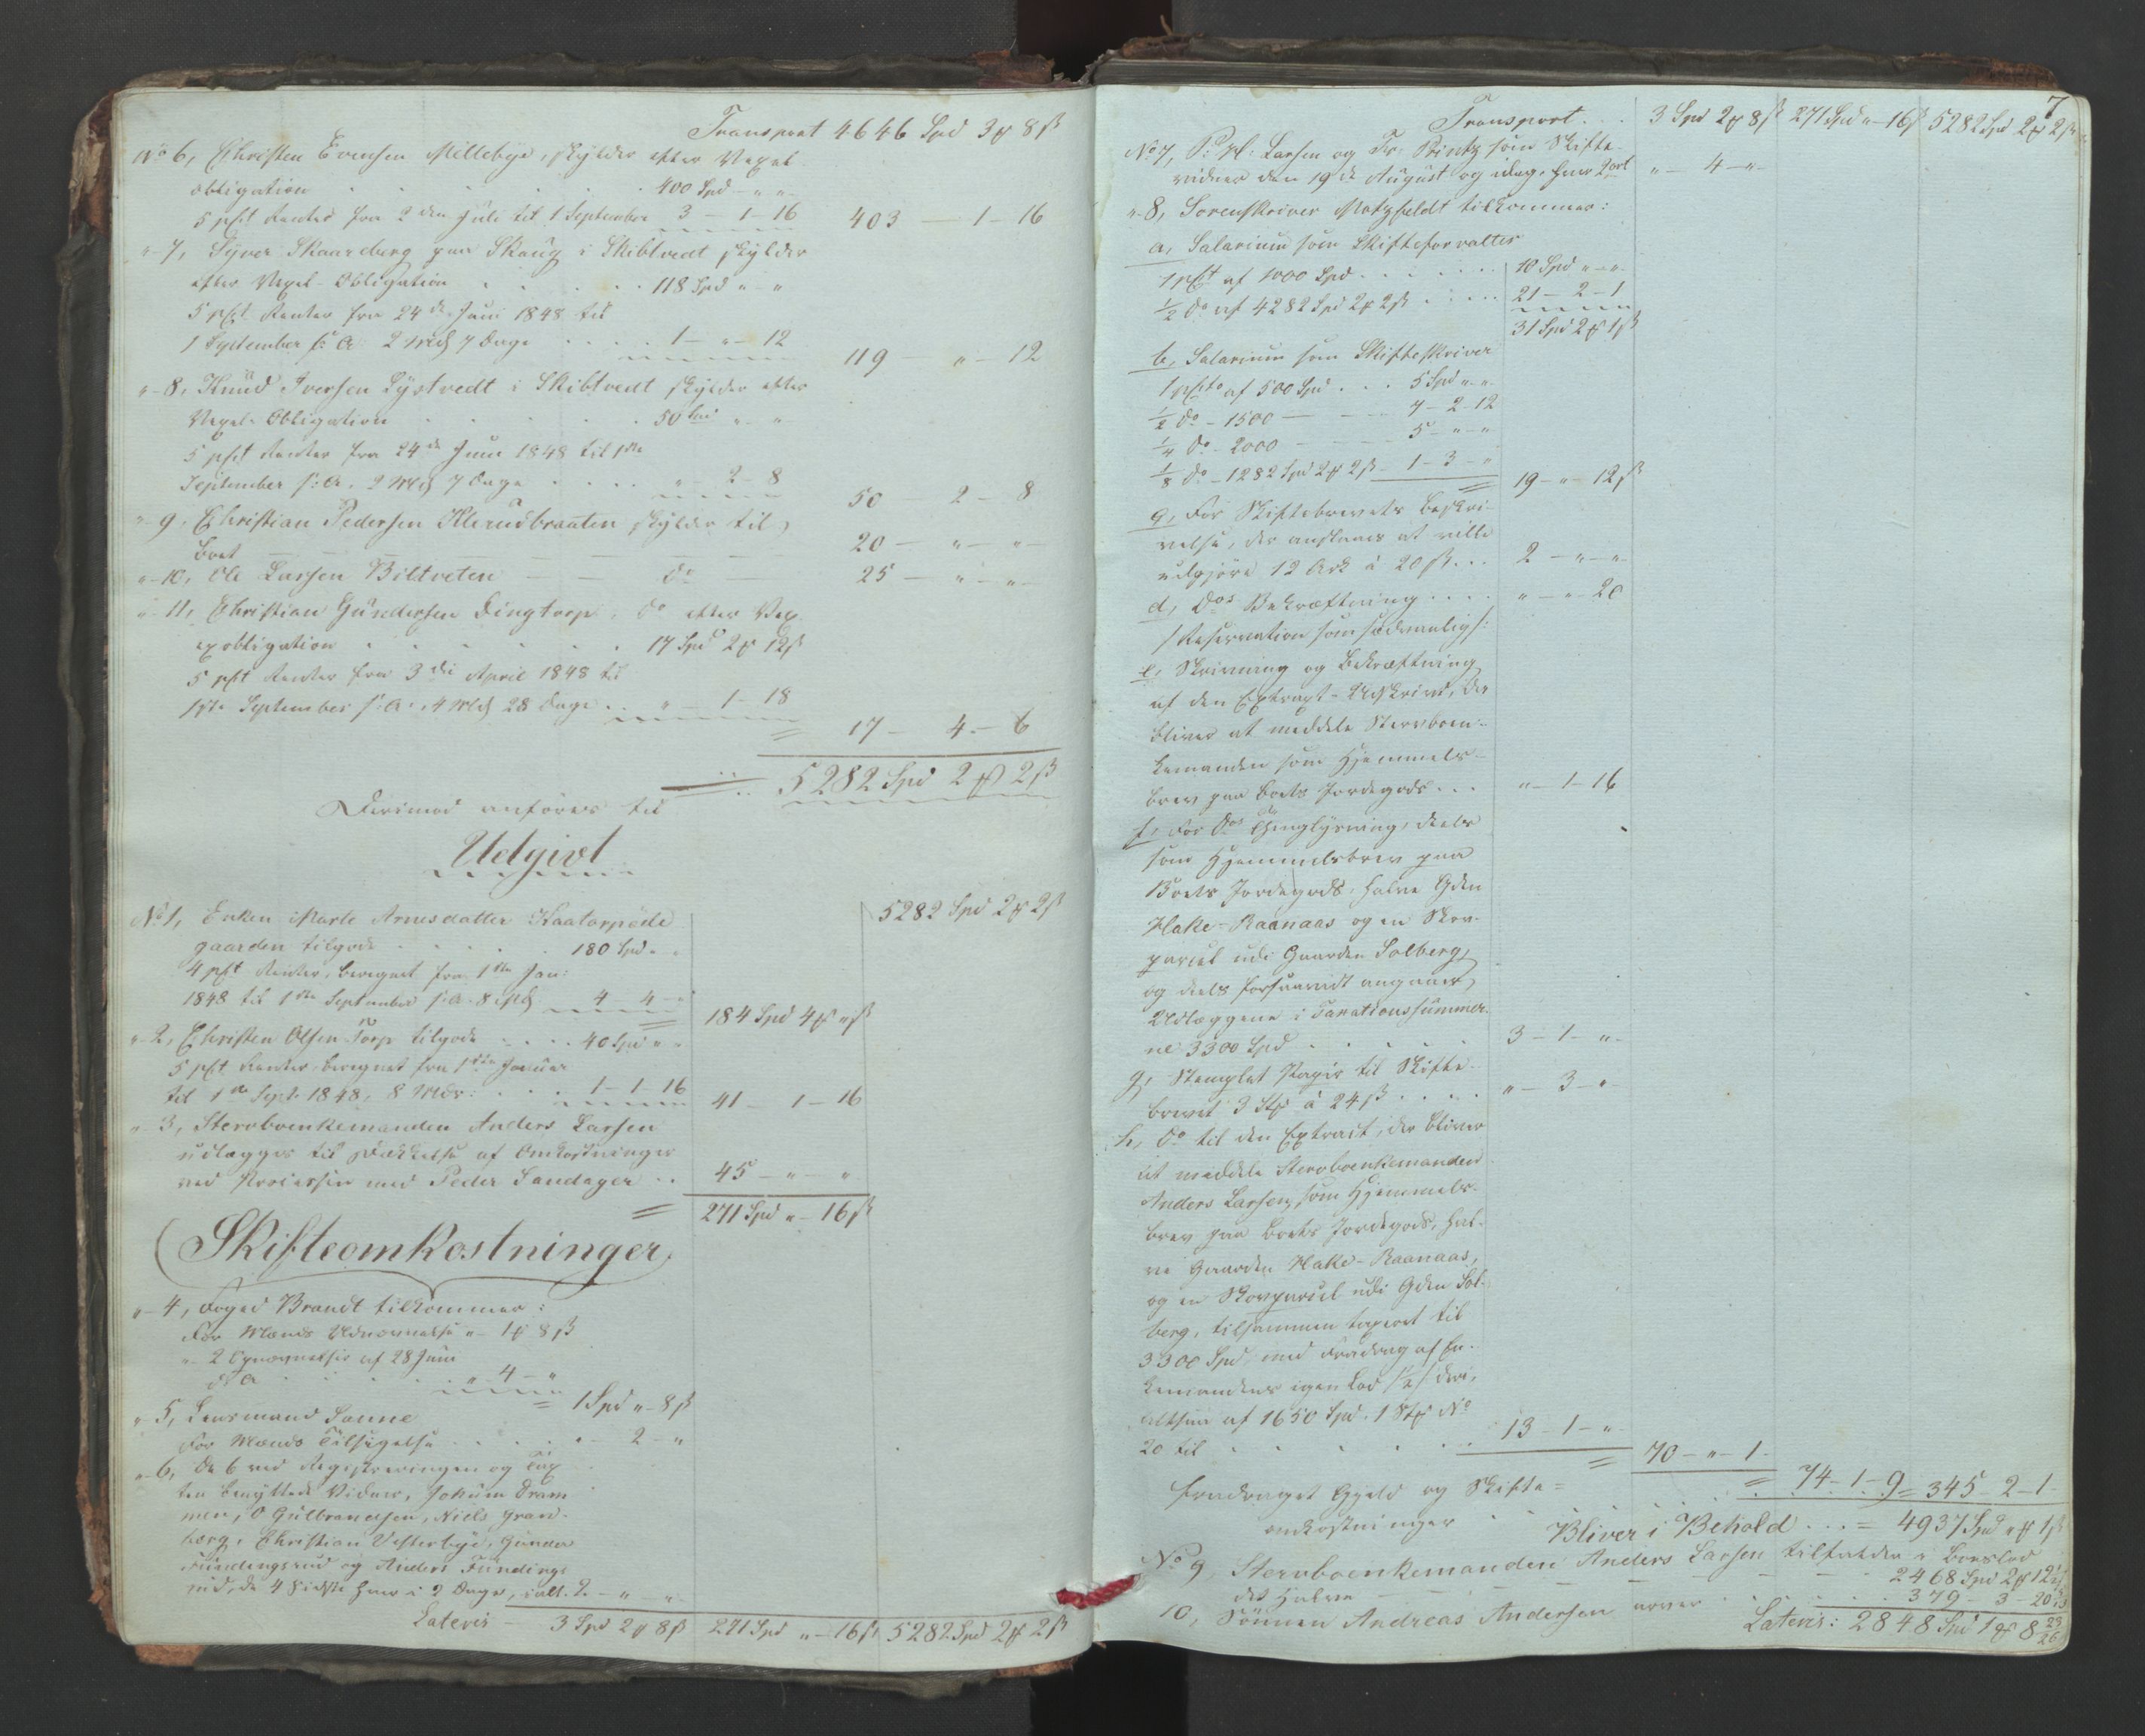 Transport 4646 Spd 3 # 8 ß
No 6, Christen Evensen Millebye, skylder efter Vexel
obligation . . . 400 Spd - „ - „
5 pCt Renter fra 2den Juli til 1 September 3 - 1 - 16 403 - 1 - 16
„ - 7, Syver Skaarberg paa Skaug i Skibtvedt skylder
efter Vexel-Obligation . . . 118 Spd „ - „
5 pCt Renter fra 24de Juni 1848 til
1 September s: A: 2 Mdr 7 Dage . . . 1 - „ - 12 119 - „ - 12
„ - 8, Knud Iversen Lystvedt i Skibtvedt skylder efter
Vexel-Obligation . . . 50 Spd „ - „
5 pCt Renter fra 24de Juni 1848 til 1ste
September s: A. 2 Mdr 7 Dage . . . „ 2 - 8 50 2 - 8
„ - 9, Christian Pedersen skylder til
Boet 20 - „ - „
„ - 10, Ole Larsen Biltveten — — do 25 - „ - „
„ - 11, Christian Gundersen Dingtorp, do efter Vex
exobligation . . . 17 Spd 2 # 12 ß
5 pCt Renter fra 3die April 1848 til
1ste September s: A: 4 Mdr 28 Dage . . „ 1 - 18
= 17 - 4 - 6
= 5282 Spd 2 # 2 ß
Derimod anføres til
Udgivt
5282 Spd 2 # 2 ß
No 1, Enken Marte Arnesdatter
gaarden tilgode . . . 180 Spd „ -
4 pCt Renter, beregnet fra 1ste Jan:
1848 til 1ste September s: A. 8 Mdr 4 - 4 - „ = 184 Spd 4 # „ ß
„ - 2, Christen Olsen Torp tilgode . . . 40 Spd „ -
5 pCt Renter, beregnet fra 1ste Januar
til 1ste Sept. 1848, 8 Mdr: . . . 1 - 1 - 16 41 - 1 - 16
„ - 3, Stervboenkemanden Anders Larsen
udlægges til Dækkelse af Omkostninger
ved Processen med Peder Sandager . . 45 - „ - „
= 271 Spd „ - 16 ß
Skifteomkostninger
„ - 4, Foged Brandt tilkommer:
For Mænds Udnævnelse „ - 1 # 8 ß
„ - 2 Opnævnelser af 28 Juni
d: A . . . „ 4 - „
= 1 Spd „ - 8 ß
„ 5, Lensmand Sanne
for Mænds Tilsigelse . . . „ - 2 - „
„ - 6, De 6 ved Registreringen og Tax
ten benyttede Vidner, Johan Dram
men, O Gulbrandsen, Niels Gran-
berg, Christian Vesterbye, Gunder
Fundingsrud og Anders Fundings
rud, de 4 sidste hver i 2 Dage, ialt. 2 - „ - „
Lateris - 3 Spd 2 # 8 ß 271 Spd „ - 16 ß 5282 Spd 2 # 2 ß
7
Transport . . . 3 Spd 2 # 8 ß 271 Spd „ - 16 ß 5282 Spd 2 # 2 ß
No 7, P: H: Larsen og Fr: Printz som Skifte-
vidner den 19de August og idag, hver 2 ort „ - 4 - „
„ - 8, Sorenskriver Motzfeldt tilkommer:
a, Salarium som Skifteforvalter
1 pCt af 1000 Spd . . . 10 Spd „ - „
1/2 do af 4282 Spd 2 # 2 ß . . . 21 - 2 - 1
31 Spd 2 # 1 ß
b, Salarium som Skifteskriver
1 pCto af 500 Spd . . . 5 Spd „ - „
1/2 do - 1500 — 7 - 2 - 12
1/4 do - 2000 — 5 - „ - „
1/8 do - 1282 Spd 2 # 2 ß - 1 - 3 - „ = 19 - „ - 12 ß
c, For Skiftebrevets Beskri-
velse, der ansslaaes at ville
udgjøre 12 Ark à 20 ß . . . 2 - „ - „
d, dos Bekræftning . . . „ - „ - 20
/: Reservation som sædvanlig :/
e, Skrivning og Bekræftning
af den Extract-Udskrivt, der
bliver at meddele Stervboen-
kemanden som Hjemmels-
brev paa Boets Jordegods . . . „ - 1 - 16
f, For dos Thinglysning, deels
som Hjemmelsbrev paa
Boets Jordegods, halve Gden
Hake-Raanaas og en Skov-
parcel udi Gaarden Solberg,
og deels forsaavidt angaaer
Udlæggene i Taxationssummer-
ne 3300 Spd . . . 3 - 1 - „
g, Stemplet Papir til Skifte-
brevet 3 Stk à 24 ß . . . „ - 3 - „
h, do til den Extract, der bliver
at meddele Stervboenkemanden
Anders Larsen, som Hjemmels-
brev paa Boets Jordegods, hal-
ve Gaarden Hake-Raanaas,
og en Skovparcel udi Gden Sol-
berg, tilsammen taxeret til
3300 Spd, med Fradrag af En-
kemandens egen Lod /: 1/2 :/ deri,
altsaa af 1650 Spd. 1 Stk No
20 til . . . 13 - 1 - „
= 70 - „ - 1 -
= 74 - 1 - 9 = 345 - 2 - 1 -
fradraget Gjæld og Skifte=
omkostninger . . Bliver i Behold . . . = 4937 Spd „ # 1 ß
No 9, Stervboenkemanden Anders Larsen tilfalder i Boeslod
det Halve — — — 2468 Spd 2 # 12 1/2
10, Sønnen Andreas Andersen arver . . . 379 - 3 - 20
Lateris: 2848 Spd 1 # 8 23/26